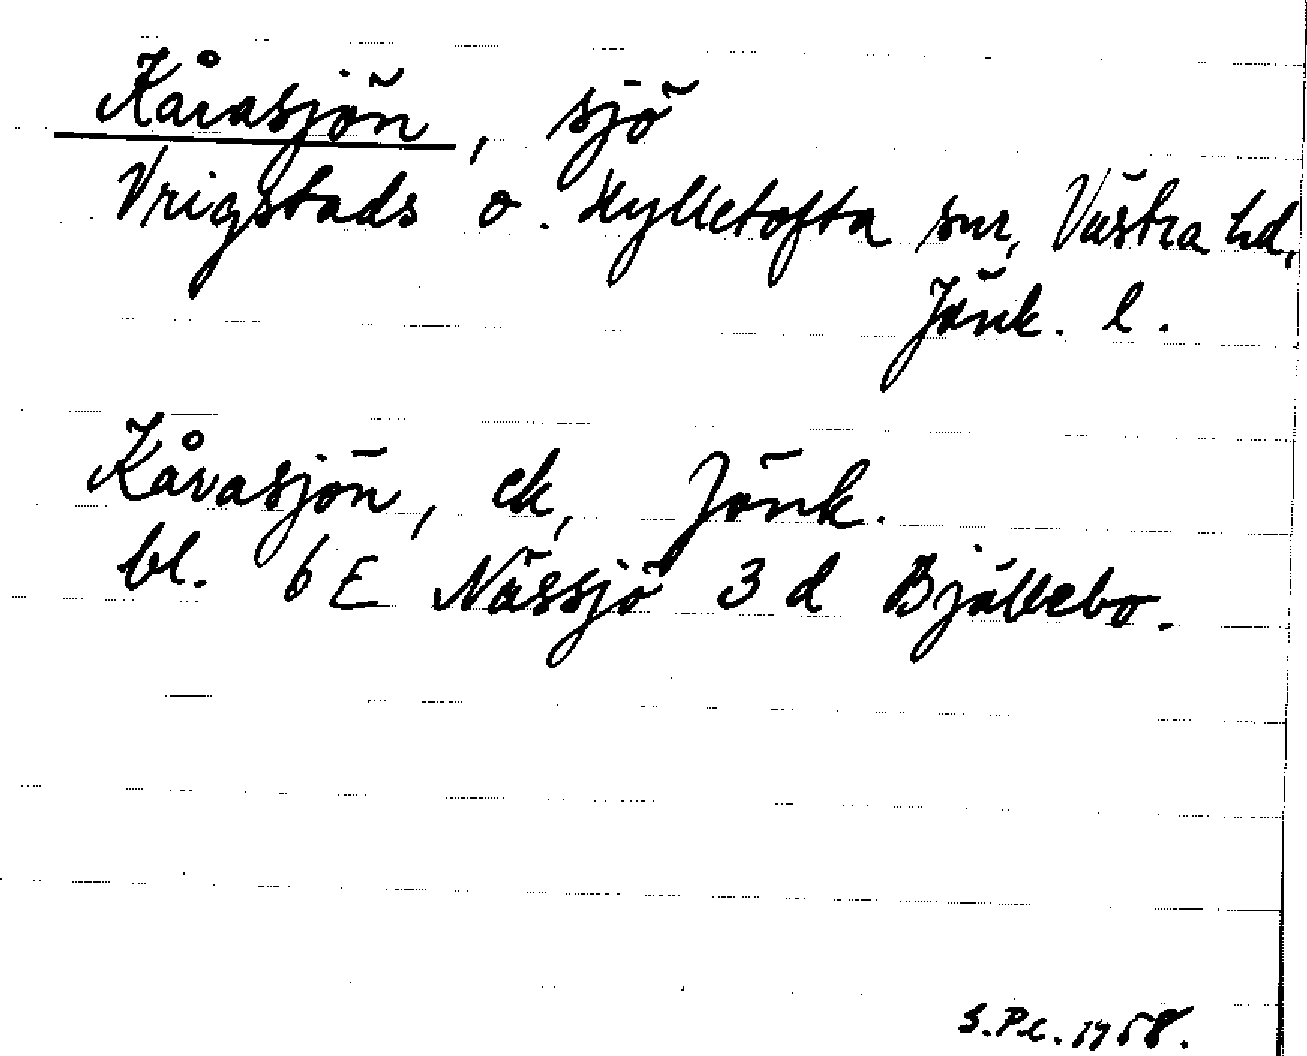 Kåvasjön, sjö
Vrigstads o. Hylletofta snr, Västra hd,
Jönk. l.
Kåvasjön, ek, Jönk.
bl. 6 E Nässjö 3 d Bjällebo.
1958.